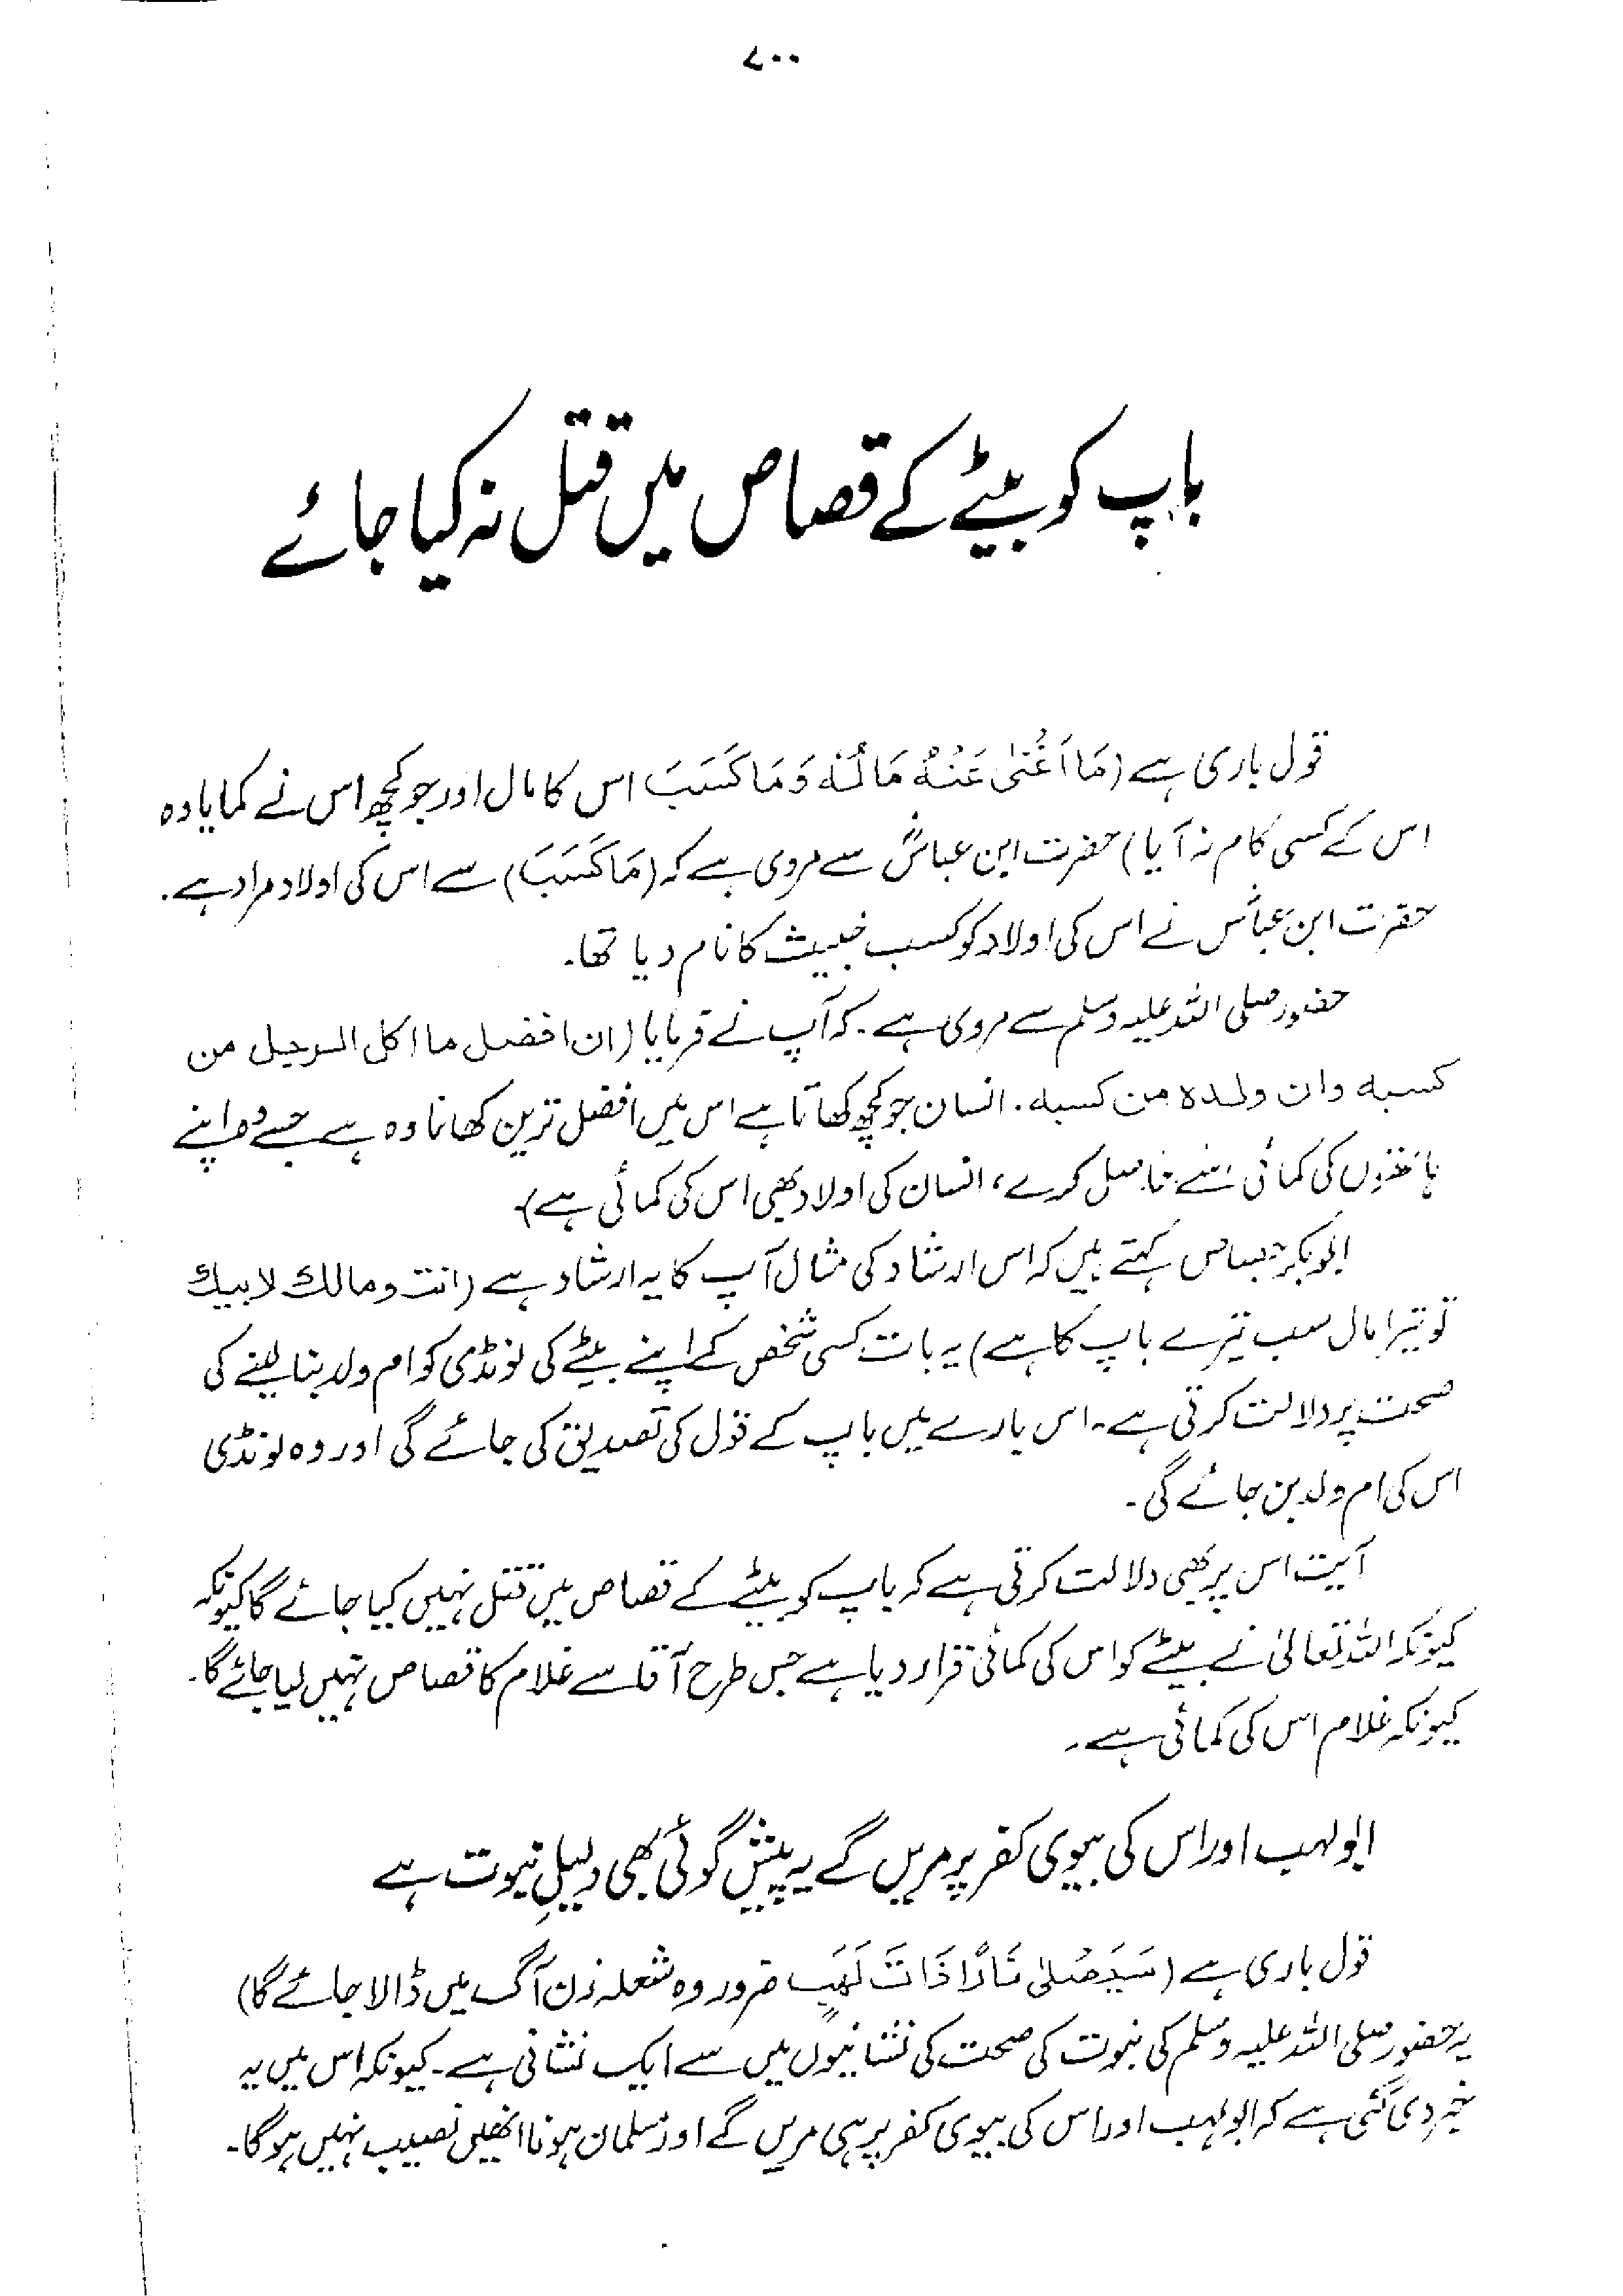 ۷۰۰
باپ کو بیٹے کے قصاص میں قتل نہ کیا جائے
قول باری ہے (مَا اَغْنٰی عَنْهُ مَالُهٗ وَمَا كَسَبَ اس کا مال اور جو کچھ اس نے کمایا وہ
اس کے کسی کام نہ آیا) حضرت ابن عباسؓ سے مروی ہے کہ (مَا كَسَبَ) سے اس کی اولاد مراد ہے۔
حضرت ابن عباسؓ نے اس کی اولاد کو کسب خبیث کا نام دیا تھا۔
حضور صلی اللہ علیہ وسلم سے مروی ہے۔ کہ آپ نے فرمایا (ان افضل ما اكل الرجل من
كسبه وان ولده من كسبه۔ انسان جو کچھ کھاتا ہے اس میں افضل ترین کھانا وہ ہے جسے وہ اپنے
ہاتھوں کی کمائی سے حاصل کرے، انسان کی اولاد بھی اس کی کمائی ہے)۔
ابوبکر جصاص کہتے ہیں کہ اس ارشاد کی مثال آپ کا یہ ارشاد ہے (انت ومالك لابيك
تو تیرا مال سب تیرے باپ کا ہے) یہ بات کسی شخص کے اپنے بیٹے کی لونڈی کو ام ولد بنا لینے کی
صحت پر دلالت کرتی ہے۔ اس بارے میں باپ کے قول کی تصدیق کی جائے گی اور وہ لونڈی
اس کی ام ولد بن جائے گی۔
آیت اس پر بھی دلالت کرتی ہے کہ باپ کو بیٹے کے قصاص میں قتل نہیں کیا جائے گا کیونکہ
کیونکہ اللہ تعالیٰ نے بیٹے کو اس کی کمائی قرار دیا ہے جس طرح آقا سے غلام کا قصاص نہیں لیا جائے گا۔
کیونکہ غلام اس کی کمائی ہے۔
ابولہب اور اس کی بیوی کفر پر مریں گے یہ پیش گوئی بھی دلیلِ نبوت ہے
قول باری ہے (سَيَصْلٰی نَارًا ذَاتَ لَهَبٍ ضرور وہ شعلہ زن آگ میں ڈالا جائے گا)
یہ حضور صلی اللہ علیہ وسلم کی نبوت کی صحت کی نشانیوں میں سے ایک نشانی ہے۔ کیونکہ اس میں یہ
خبر دی گئی ہے کہ ابولہب اور اس کی بیوی کفر پر ہی مریں گے اور مسلمان ہونا انھیں نصیب نہیں ہوگا۔